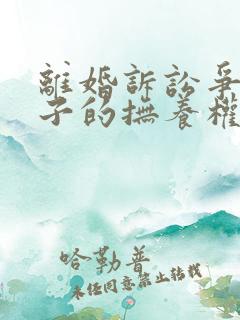 離婚訴訟爭
子的撫養權
哈勒普
未經同意禁止轉載